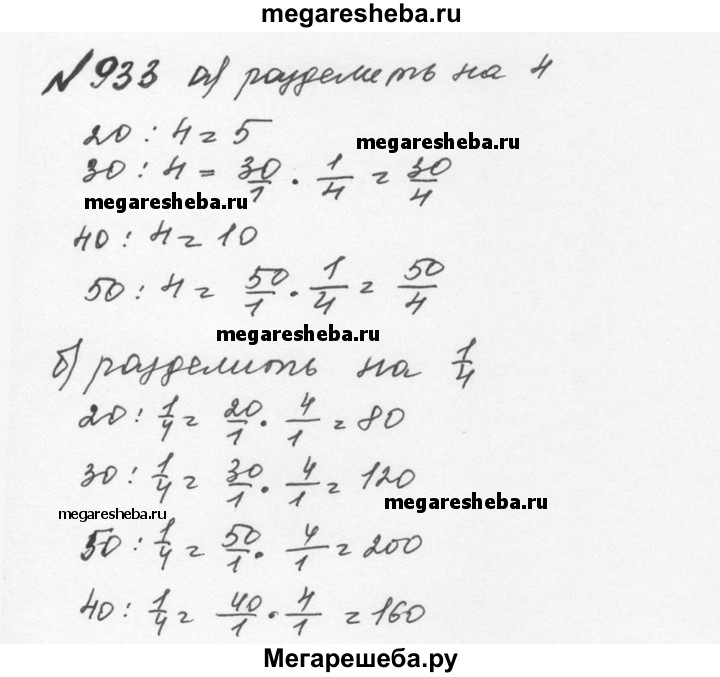 megaresheba.ru
№933 а) разделить на 4
20 : 4 = 5
megaresheba.ru
30 : 4 = 30/1 · 1/4 = 30/4
megaresheba.ru
40 : 4 = 10
50 : 4 = 50/1 · 1/4 = 50/4
megaresheba.ru
б) разделить на 1/4
20 : 1/4 = 20/1 · 4/1 = 80
30 : 1/4 = 30/1 · 4/1 = 120
megaresheba.ru
megaresheba.ru
50 : 1/4 = 50/1 · 4/1 = 200
40 : 1/4 = 40/1 · 4/1 = 160
Мегарешеба.ру